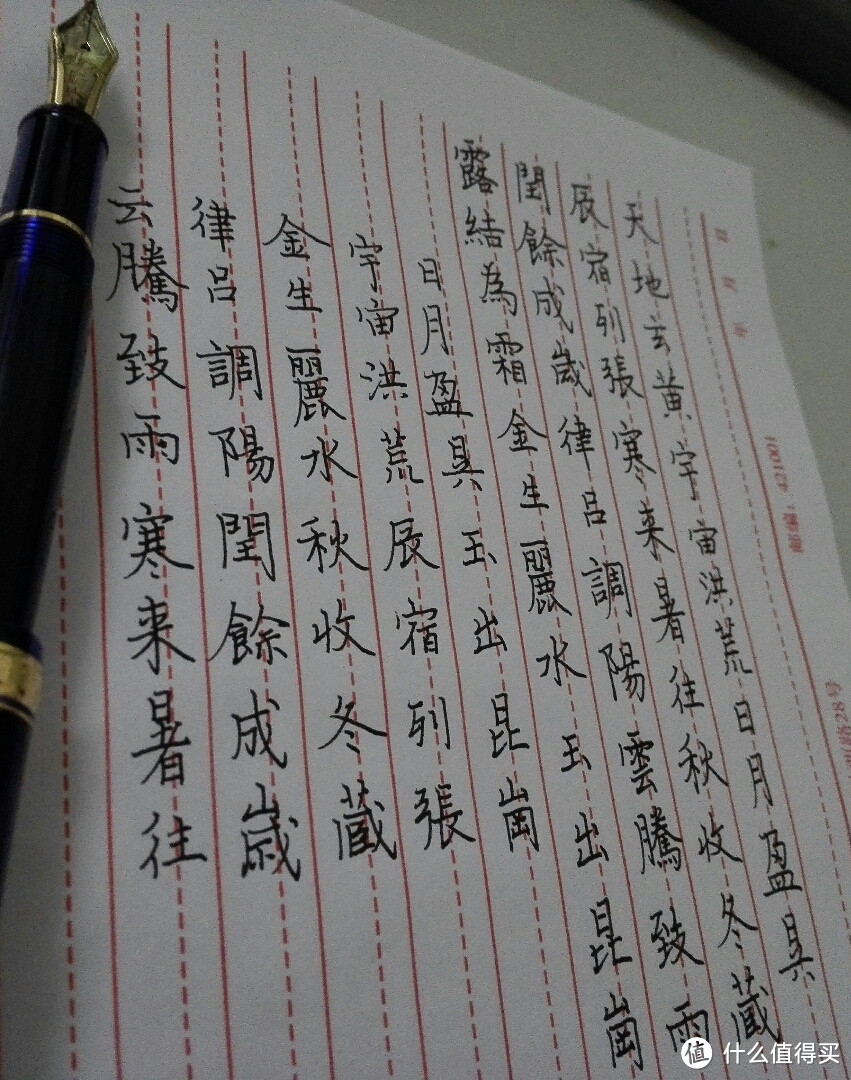 年 月 日
天地玄黄宇宙洪荒日月盈具
辰宿列張寒来暑往秋收冬藏
閏餘成歲律吕調陽雲騰致雨
露結為霜金生麗水玉出昆崗
日月盈具玉出昆崗
宇宙洪荒辰宿列張
金生麗水秋收冬藏
律吕調陽閏餘成歲
云騰致雨寒来暑往
值 什么值得买